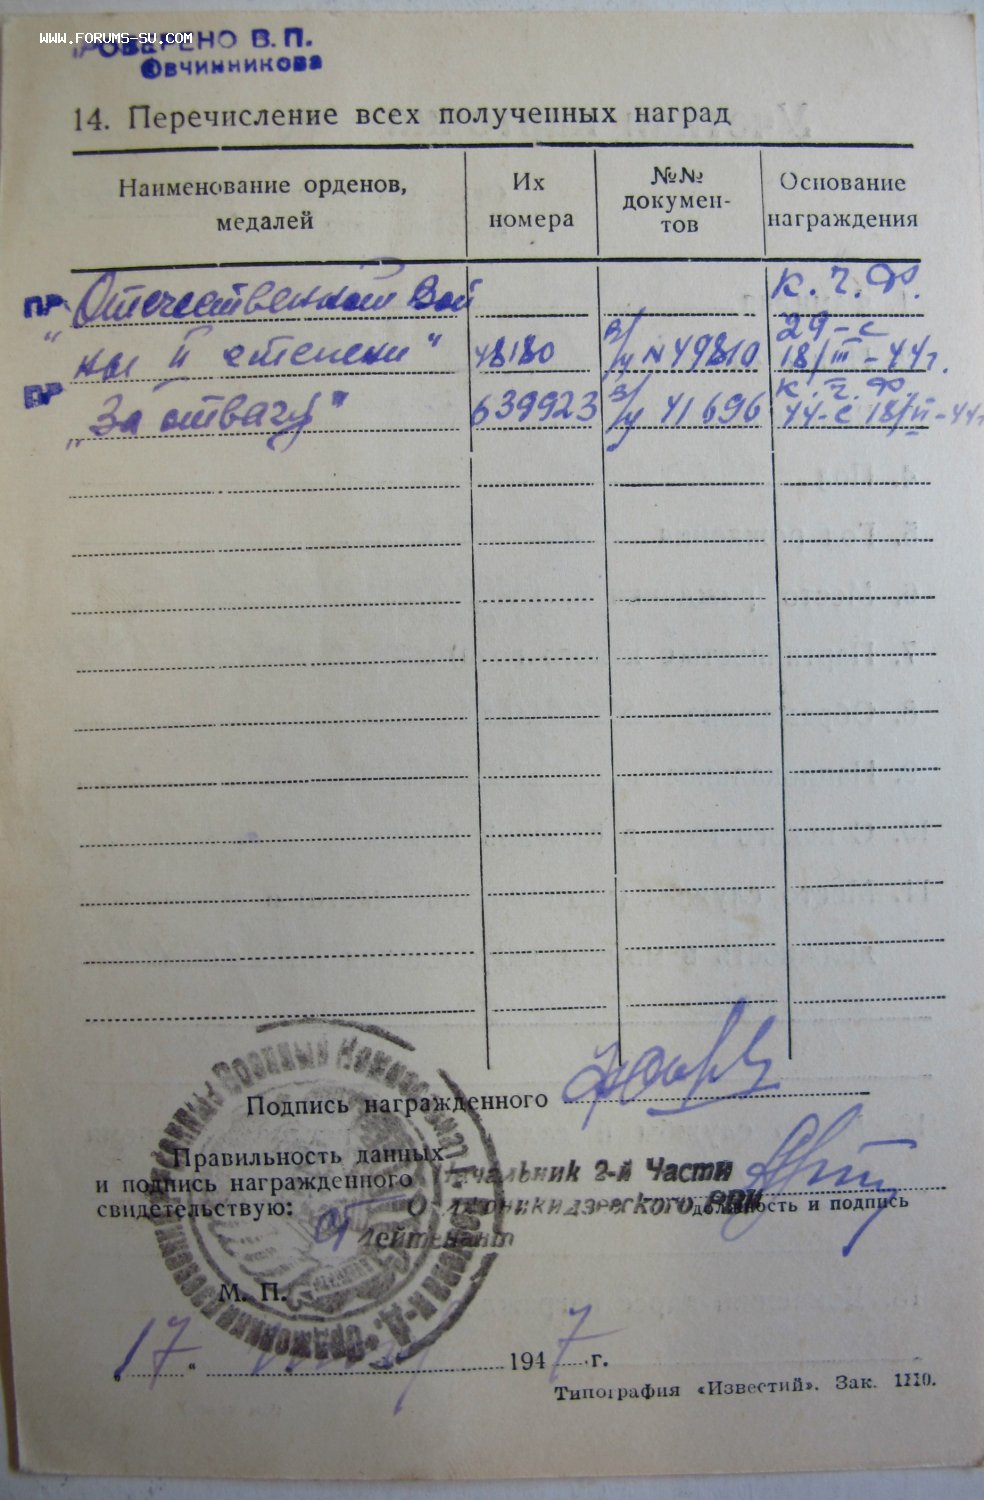 WWW.FORUMS-SU.COM
ПРОВЕРЕНО В.П.
Овчинникова
14. Перечисление всех полученных наград
Наименование орденов, медалей
Их номера
№№ докумен-тов
Основание награждения
ПР Отечественной Вой к.ч.Ф.
29-с
"ны II степени" 48180 в/у № 49810 18/III-44г.
ПР к.ч.Ф.
"За отвагу" 639923 в/у 41696 44-с 18/II-44г
Подпись награжденного
Правильность данных
и подпись награжденного
свидетельствую:
Начальник 2-й Части
Орджоникидзевского РВК
Лейтенант
должность и подпись
М. П.
„17“ 1947 г.
Типография «Известий». Зак. 1110.